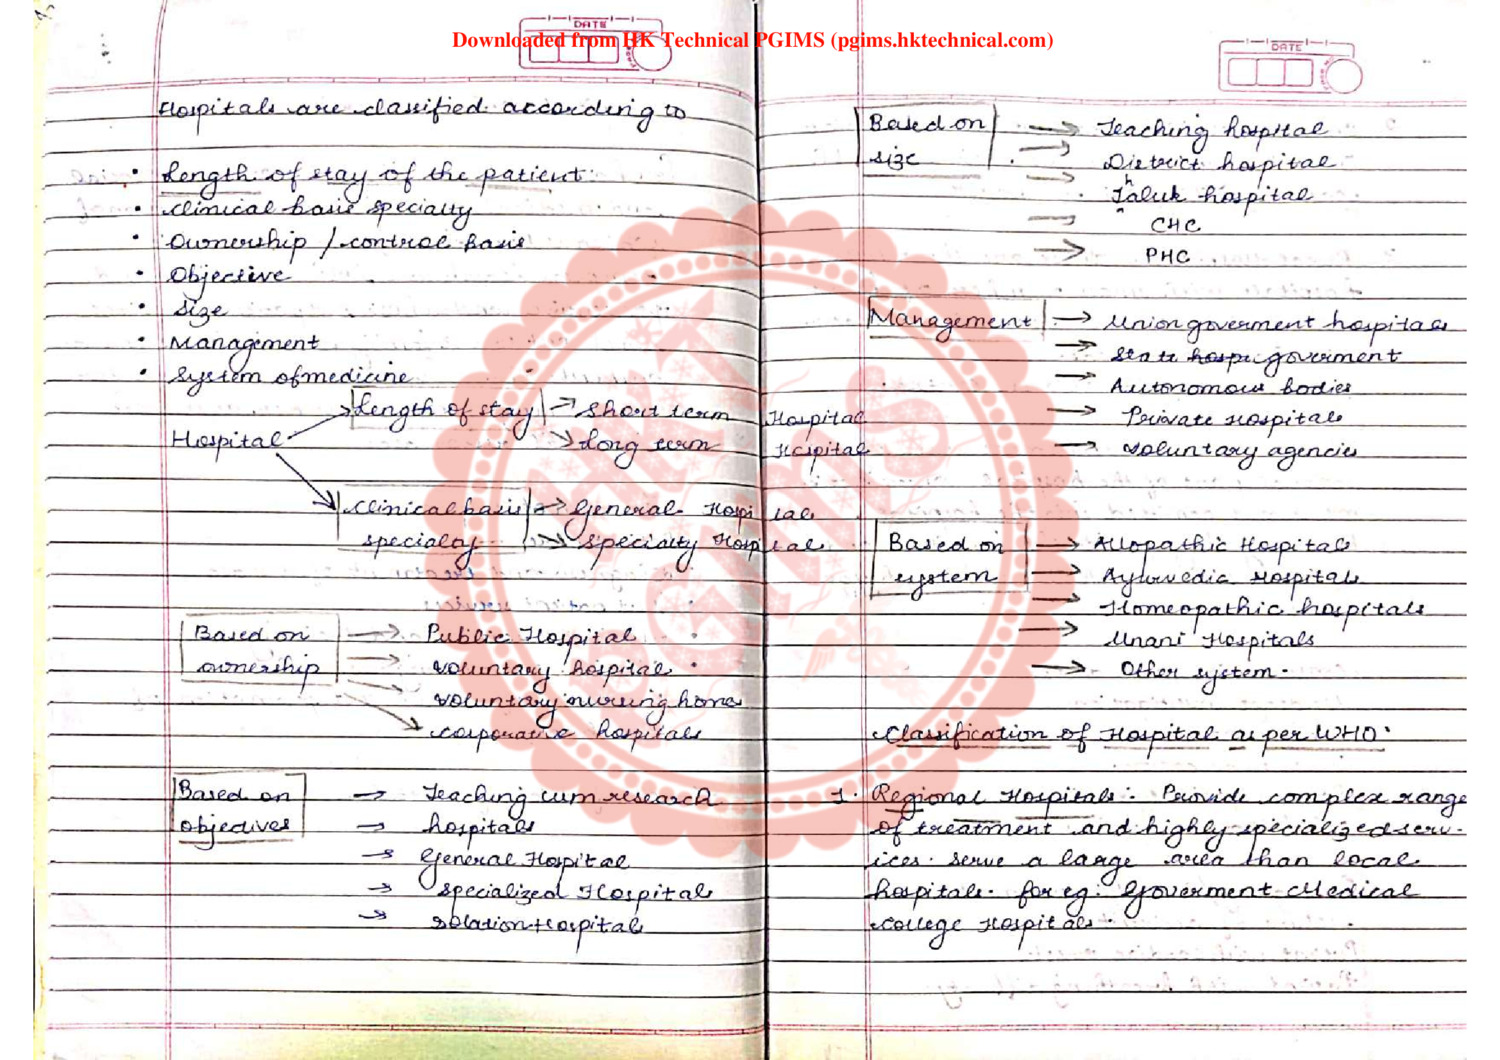 Downloaded from HK Technical PGIMS (pgims.hktechnical.com)
DATE
Hospitals are classified according to
• Length of stay of the patient:
• clinical basis specialty
• Ownership / control basis
• Objective
• Size
• Management
• System of medicine
Length of stay → short term Hospital
Hospital → long term Hospital
clinical basis → General Hospitals
specialty → specialty Hospitals
Based on → Public Hospital
ownership → voluntary hospital
→ voluntary nursing home
→ corporative hospitals
Based on → Teaching cum research
objectives → hospitals
→ General Hospital
→ specialized Hospitals
→ Isolation Hospitals
DATE
Based on → Teaching hospital
size → District hospital
→ Taluk hospital
→ CHC
→ PHC
Management → Union goverment hospitals
→ State hospi goverment
→ Autonomous bodies
→ Private Hospitals
→ voluntary agencies
Based on → Allopathic Hospitals
system → Ayurvedic Hospitals
→ Homeopathic hospitals
→ Unani Hospitals
→ Other system.
Classification of Hospital as per WHO:
1. Regional Hospitals:- Provide complex range
of treatment and highly specialized serv-
ices. serve a large area than local
hospitals. for eg: Goverment Medical
college Hospitals.
HK
PGIMS